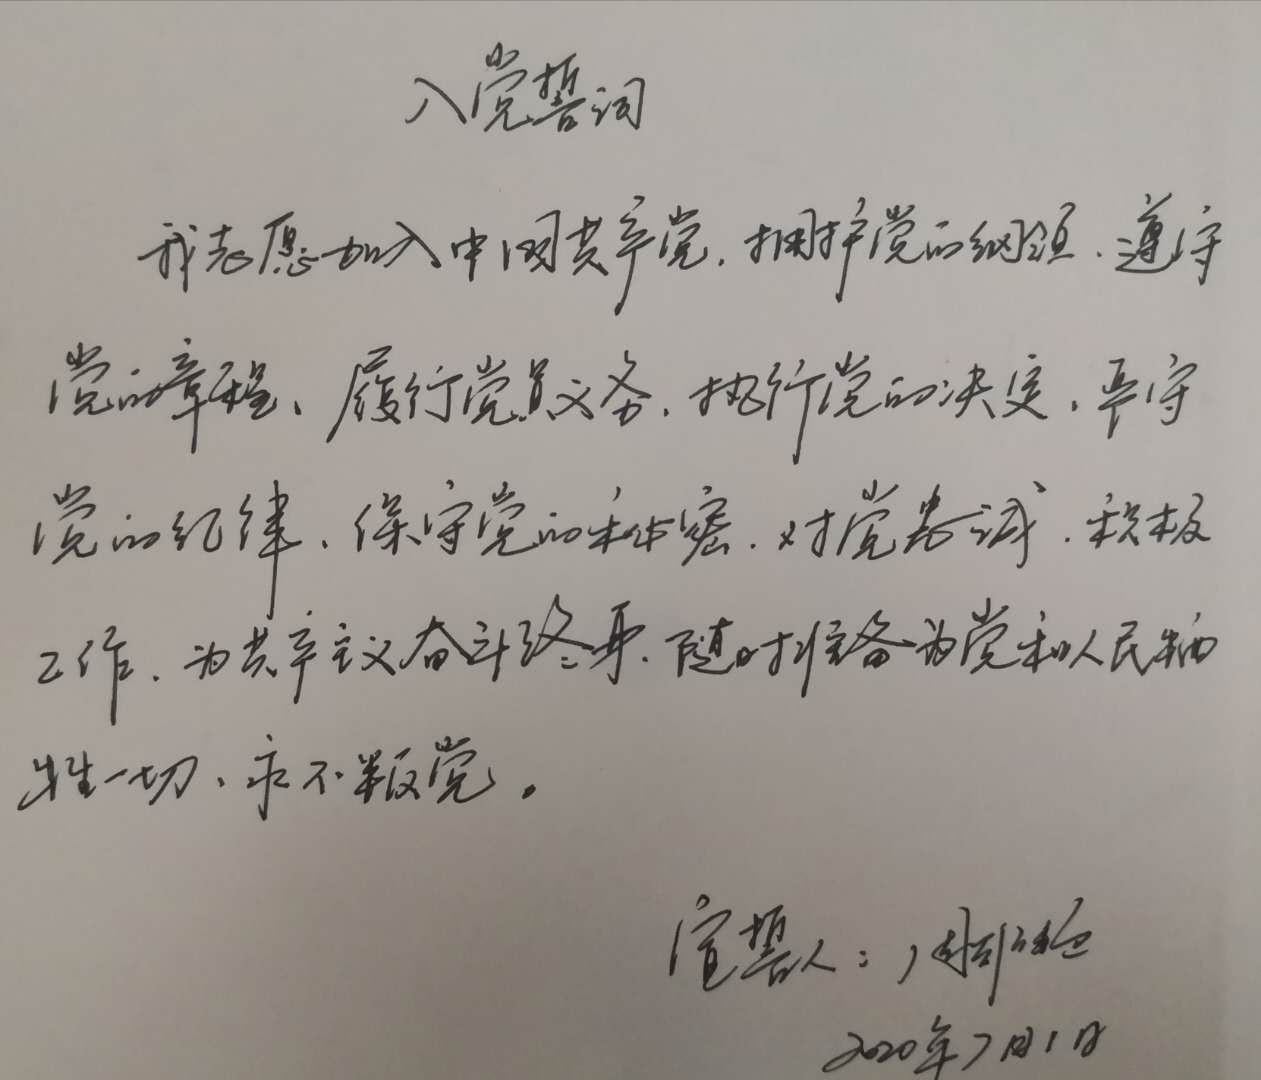 入党誓词
我志愿加入中国共产党,拥护党的纲领、遵守
党的章程、履行党员义务,执行党的决定、严守
党的纪律、保守党的秘密,对党忠诚,积极
工作,为共产主义奋斗终身,随时准备为党和人民牺
牲一切、永不叛党。
宣誓人:周
2020年7月1日